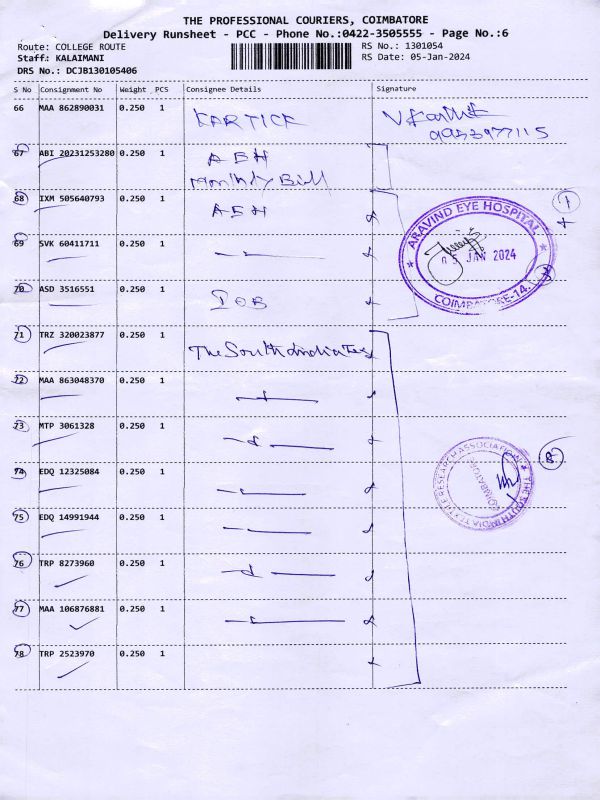 THE PROFESSIONAL COURIERS, COIMBATORE
Delivery Runsheet - PCC - Phone No.:0422-3505555 - Page No.:6
Route: COLLEGE ROUTE RS No.: 1301054
Staff: KALAIMANI RS Date: 05-Jan-2024
DRS No.: DCJB130105406
S No Consignment No Weight PCS Consignee Details Signature
66 MAA 862890031 0.250 1 KARTICK V Karthik
9953977115
67 ABI 20231253280 0.250 1 AEH
Monthly Bill
68 IXM 505640793 0.250 1 AEH
ARAVIND EYE HOSPITAL
05 JAN 2024
COIMBATORE-14.
69 SVK 60411711 0.250 1
70 ASD 3516551 0.250 1 IOB
71 TRZ 320023877 0.250 1 The South India Tex
72 MAA 863048370 0.250 1
73 MTP 3061328 0.250 1
74 EDQ 12325084 0.250 1
THE SOUTH INDIA TEXTILE RESEARCH ASSOCIATION
COIMBATORE
8
75 EDQ 14991944 0.250 1
76 TRP 8273960 0.250 1
77 MAA 106876881 0.250 1
78 TRP 2523970 0.250 1